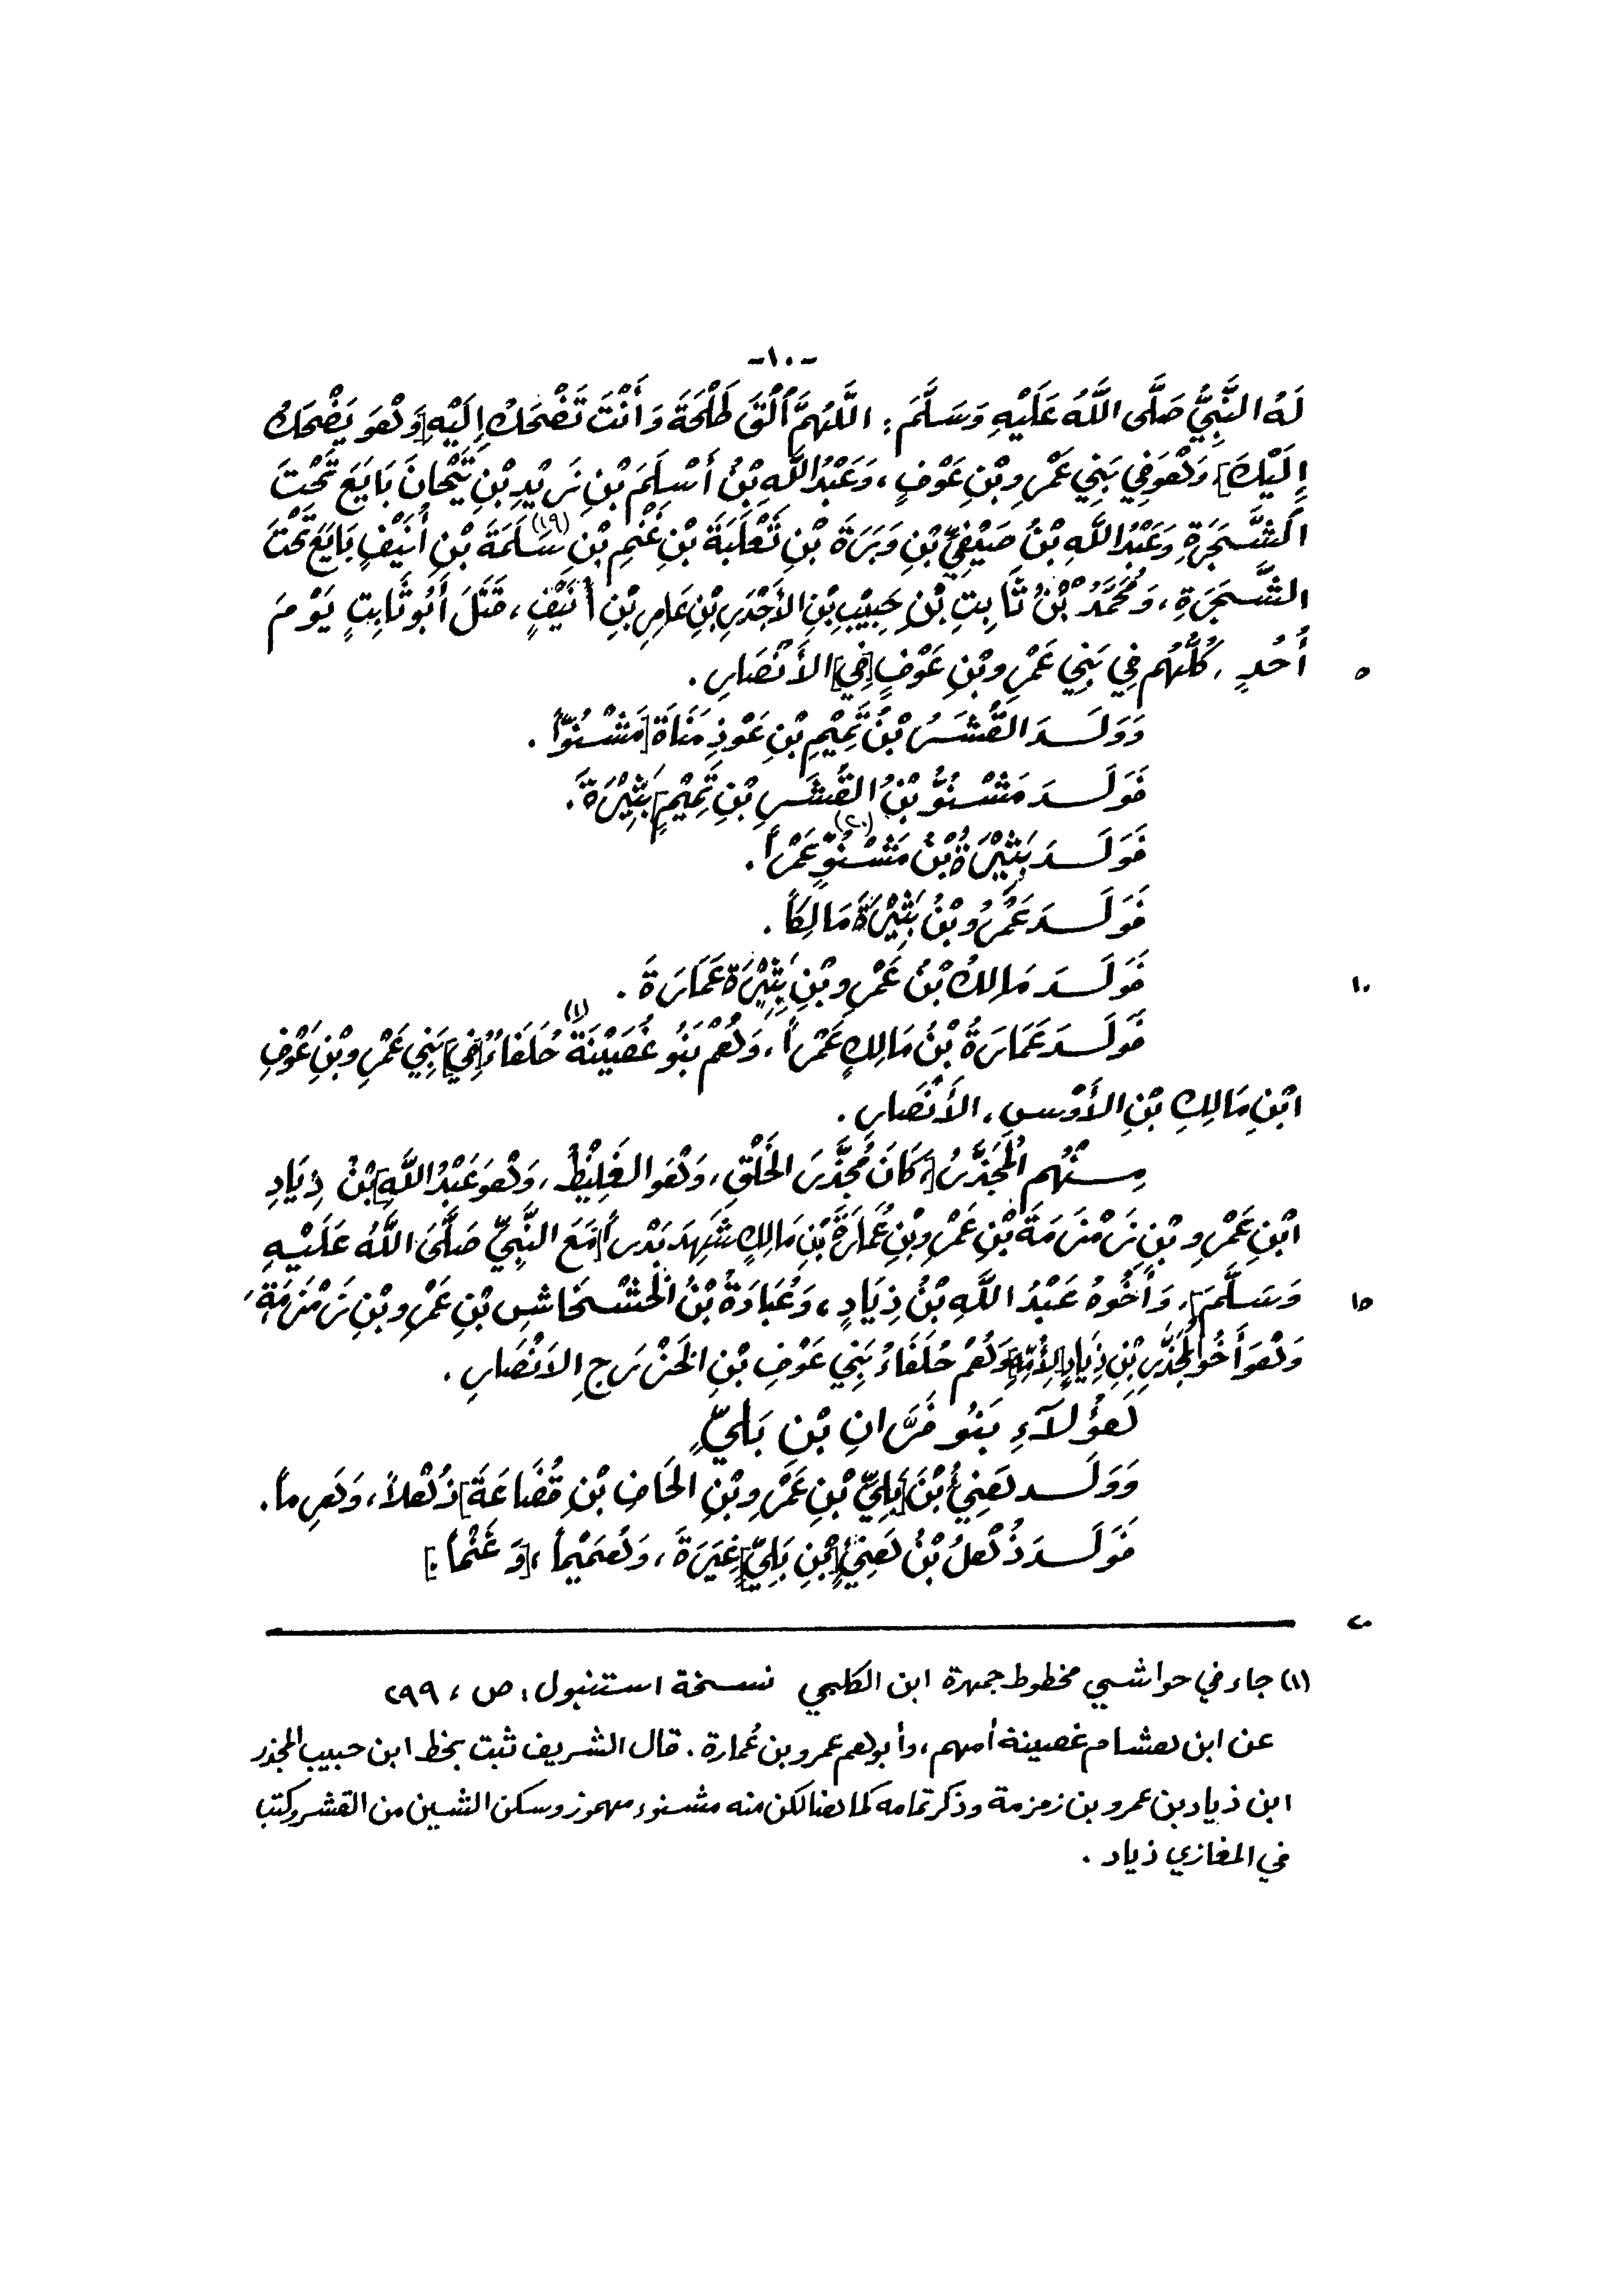 -١٠-
لَهُ النَّبِيُّ صَلَّى اللَّهُ عَلَيْهِ وَسَلَّمَ: اللَّهُمَّ اُلْقَ طَلْحَةَ وَأَنْتَ تَضْحَكُ إِلَيْهِ [وَهْوَ يَضْحَكُ
إِلَيْكَ]، وَهْوَ فِي بَنِي عَمْرِو بْنِ عَوْفٍ، وَعَبْدُ اللَّهِ بْنُ أَسْلَمَ بْنِ زَيْدِ بْنِ تَيْحَانَ بَايَعَ تَحْتَ
الشَّجَرَةِ وَعَبْدُ اللَّهِ بْنُ صَيْفِيِّ بْنِ وَبَرَةَ بْنِ ثَعْلَبَةَ بْنِ غَنْمِ بْنِ سَلَمَةَ (١٩) بْنِ أُنَيْفٍ بَايَعَ تَحْتَ
الشَّجَرَةِ، وَمُحَمَّدُ بْنُ ثَابِتِ بْنِ حَبِيْبِ بْنِ الأَجْدَرِ بْنِ عَامِرِ بْنِ أُنَيْفٍ، قَتَلَ أَبُو ثَابِتٍ يَوْمَ
أُحُدٍ، كُلُّهُم فِي بَنِي عَمْرِو بْنِ عَوْفٍ [فِي] الأَنْصَارِ. ٥
وَوَلَدَ القُشَرُ بْنُ تَمِيْمِ بْنِ عَوْذِ مَنَاةَ [مَشْنُوّاً.
فَوَلَدَ مَشْنُوُّ بْنُ القُشَرِ بْنِ تَمِيْمٍ] بَثِيْرَةَ.
فَوَلَدَ بَثِيْرَةُ بْنُ مَشْنُوٍّ (٢٠) عَمْراً.
فَوَلَدَ عَمْرُو بْنُ بَثِيْرَةَ مَالِكاً.
فَوَلَدَ مَالِكُ بْنُ عَمْرِو بْنِ بَثِيْرَةَ عَمَّارَةَ. ١٠
فَوَلَدَ عَمَّارَةُ بْنُ مَالِكٍ عَمْراً، وَهُمْ بَنُو غُصَيْنَةَ (١) حُلَفَاءُ [فِي] بَنِي عَمْرِو بْنِ عَوْفِ
ابْنِ مَالِكِ بْنِ الأَوْسِ، الأَنْصَارِ.
مِنْهُم المُجَذَّرُ [كَانَ مُجَذَّرَ الخَلْقِ، وَهْوَ الغَلِيْظُ، وَهْوَ عَبْدُ اللَّهِ] بْنُ ذِيَادِ
ابْنِ عَمْرِو بْنِ زَمْزَمَةَ بْنِ عَمْرِو بْنِ عَمَّارَةَ بْنِ مَالِكٍ شَهِدَ بَدْراً [مَعَ النَّبِيِّ صَلَّى اللَّهُ عَلَيْهِ
وَسَلَّمَ]، وَأَخُوهُ عَبْدُ اللَّهِ بْنُ ذِيَادٍ، وَعُبَادَةُ بْنُ الخَشْخَاشِ بْنِ عَمْرِو بْنِ زَمْزَمَةَ، ١٥
وَهْوَ أَخُو المُجَذَّرِ بْنِ ذِيَادٍ [لِأُمِّهِ] وَهُمْ حُلَفَاءُ بَنِي عَوْفِ بْنِ الخَزْرَجِ الأَنْصَارِ.
هَؤُلَاَءِ بَنُو فَرَّانِ بْنِ بَلِيٍّ
وَوَلَد هَنِيُّ بْنُ [بَلِيِّ بْنِ عَمْرِو بْنِ الحَافِ بْنِ قُضَاعَةَ] ذُهْلاً، وَهَرِماً.
فَوَلَدَ ذُهْلُ بْنُ هَنِيِّ [بْنِ بَلِيٍّ] غِيَرَةَ، وَهُمَيْماً، [وَ غَنْماً.]
٢٠
(١) جاء في حواشي مخطوط جمهرة ابن الكلبي نسخة استنبول: ص، ٢٩٩
عن ابن هشام غصينة أمهم، وأبوهم عمرو بن عُمارة. قال الشريف ثبت بخط ابن حبيب المجذر
ابن ذياد بن عمرو بن زمزمة وذكر تمامه كما هنا لكن منه مشنوء مهموز وسكن الشين من القشر وكتب
في المغازي ذياد.